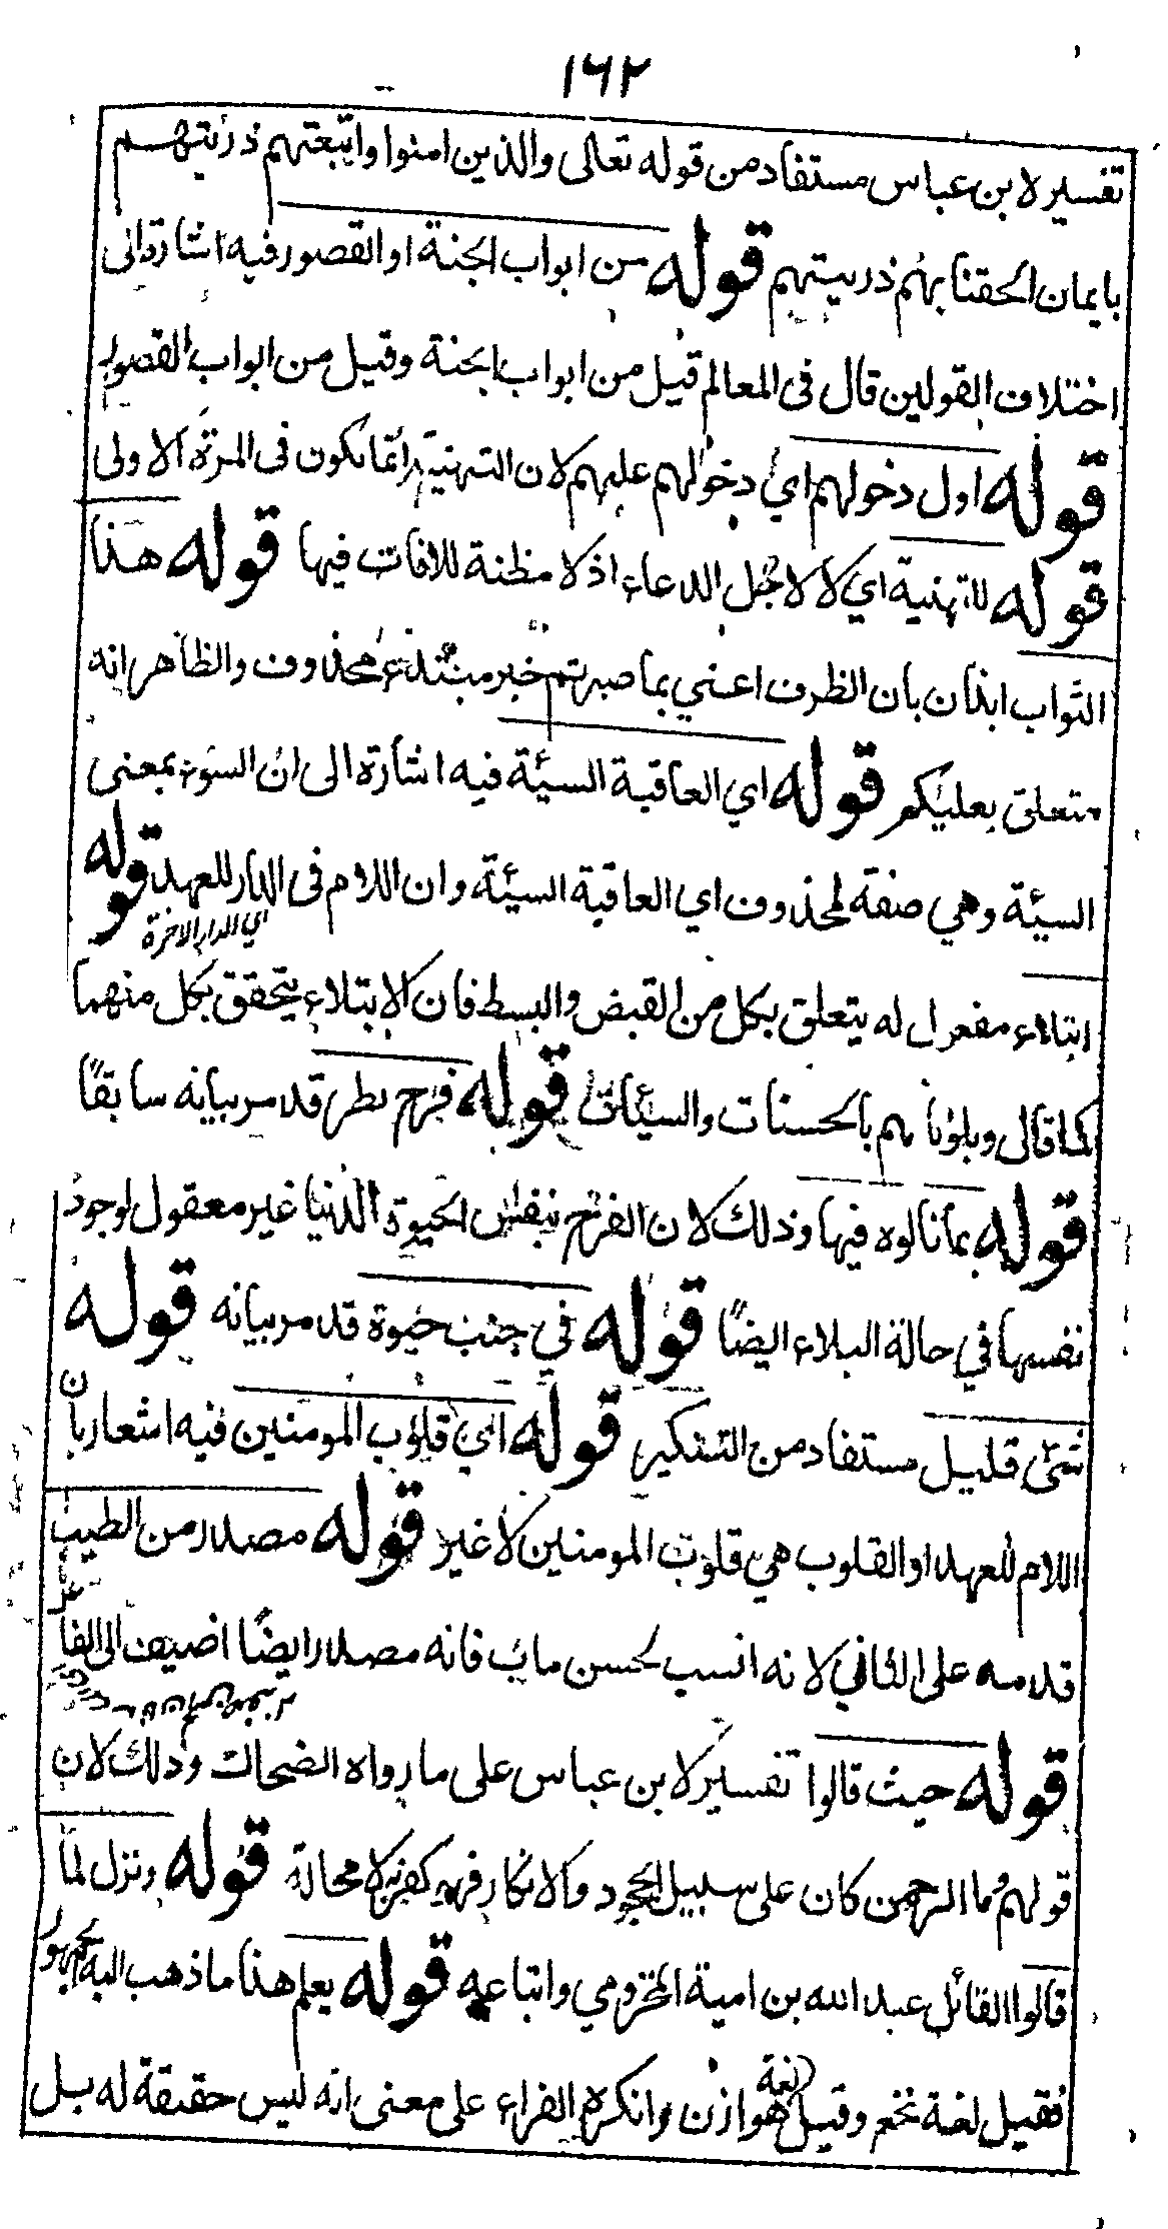 ١٦٢
تفسير لابن عباس مستفاد من قوله تعالى والذين امنوا واتبعتهم ذريتهم
بايمان الحقنا بهم ذريتهم قوله من ابواب الجنة او القصور فيه اشارة الى
اختلاف القولين قال فى المعالم قيل من ابواب الجنة وقيل من ابواب القصور
قوله اول دخولهم اي دخولهم عليهم لان التهنية انما تكون فى المرة الاولى
قوله للتهنية اي لا لاجل الدعاء اذ لا مظنة للافات فيها قوله هذا
الثواب ايذان بان الظرف اعني بما صبرتم خبر مبتدء محذوف والظاهر انه
متعلق بعليكم قوله اي العاقبة السيئة فيه اشارة الى ان السوء بمعنى
السيئة وهي صفة لمحذوف اي العاقبة السيئة وان اللام فى الدار للعهد قوله
اي الدار الاخرة
ابتلاء مفعول له يتعلق بكل من القبض والبسط فان الابتلاء يتحقق بكل منهما
كما قال وبلوناهم بالحسنات والسيئات قوله فرح بطر قد مر بيانه سابقًا
قوله بما نالوه فيها وذلك لان الفرح بنفس الحيوة الدنيا غير معقول لوجود
نفسها في حالة البلاء ايضًا قوله في جنب حيوة قد مر بيانه قوله
شئ قليل مستفاد من التنكير قوله اي قلوب المومنين فيه اشعار بان
اللام للعهد او القلوب هي قلوب المومنين لا غير قوله مصدر من الطيب
قدمه على الثاني لانه انسب لحسن ماب فانه مصدر ايضًا اضيف الى الفاعل
قوله حيث قالوا تفسير لابن عباس على ما رواه الضحاك وذلك لان
قولهم وما الرحمن كان على سبيل الجحود والانكار فهو كفر لا محالة قوله ونزل لما
قالوا القائل عبد الله بن امية المخزومي واتباعه قوله يعلم هذا ما ذهب اليه الجمهور
فقيل لغة نخع وقيل لغة هوازن وانكره الفراء على معنى انه ليس حقيقة له بل